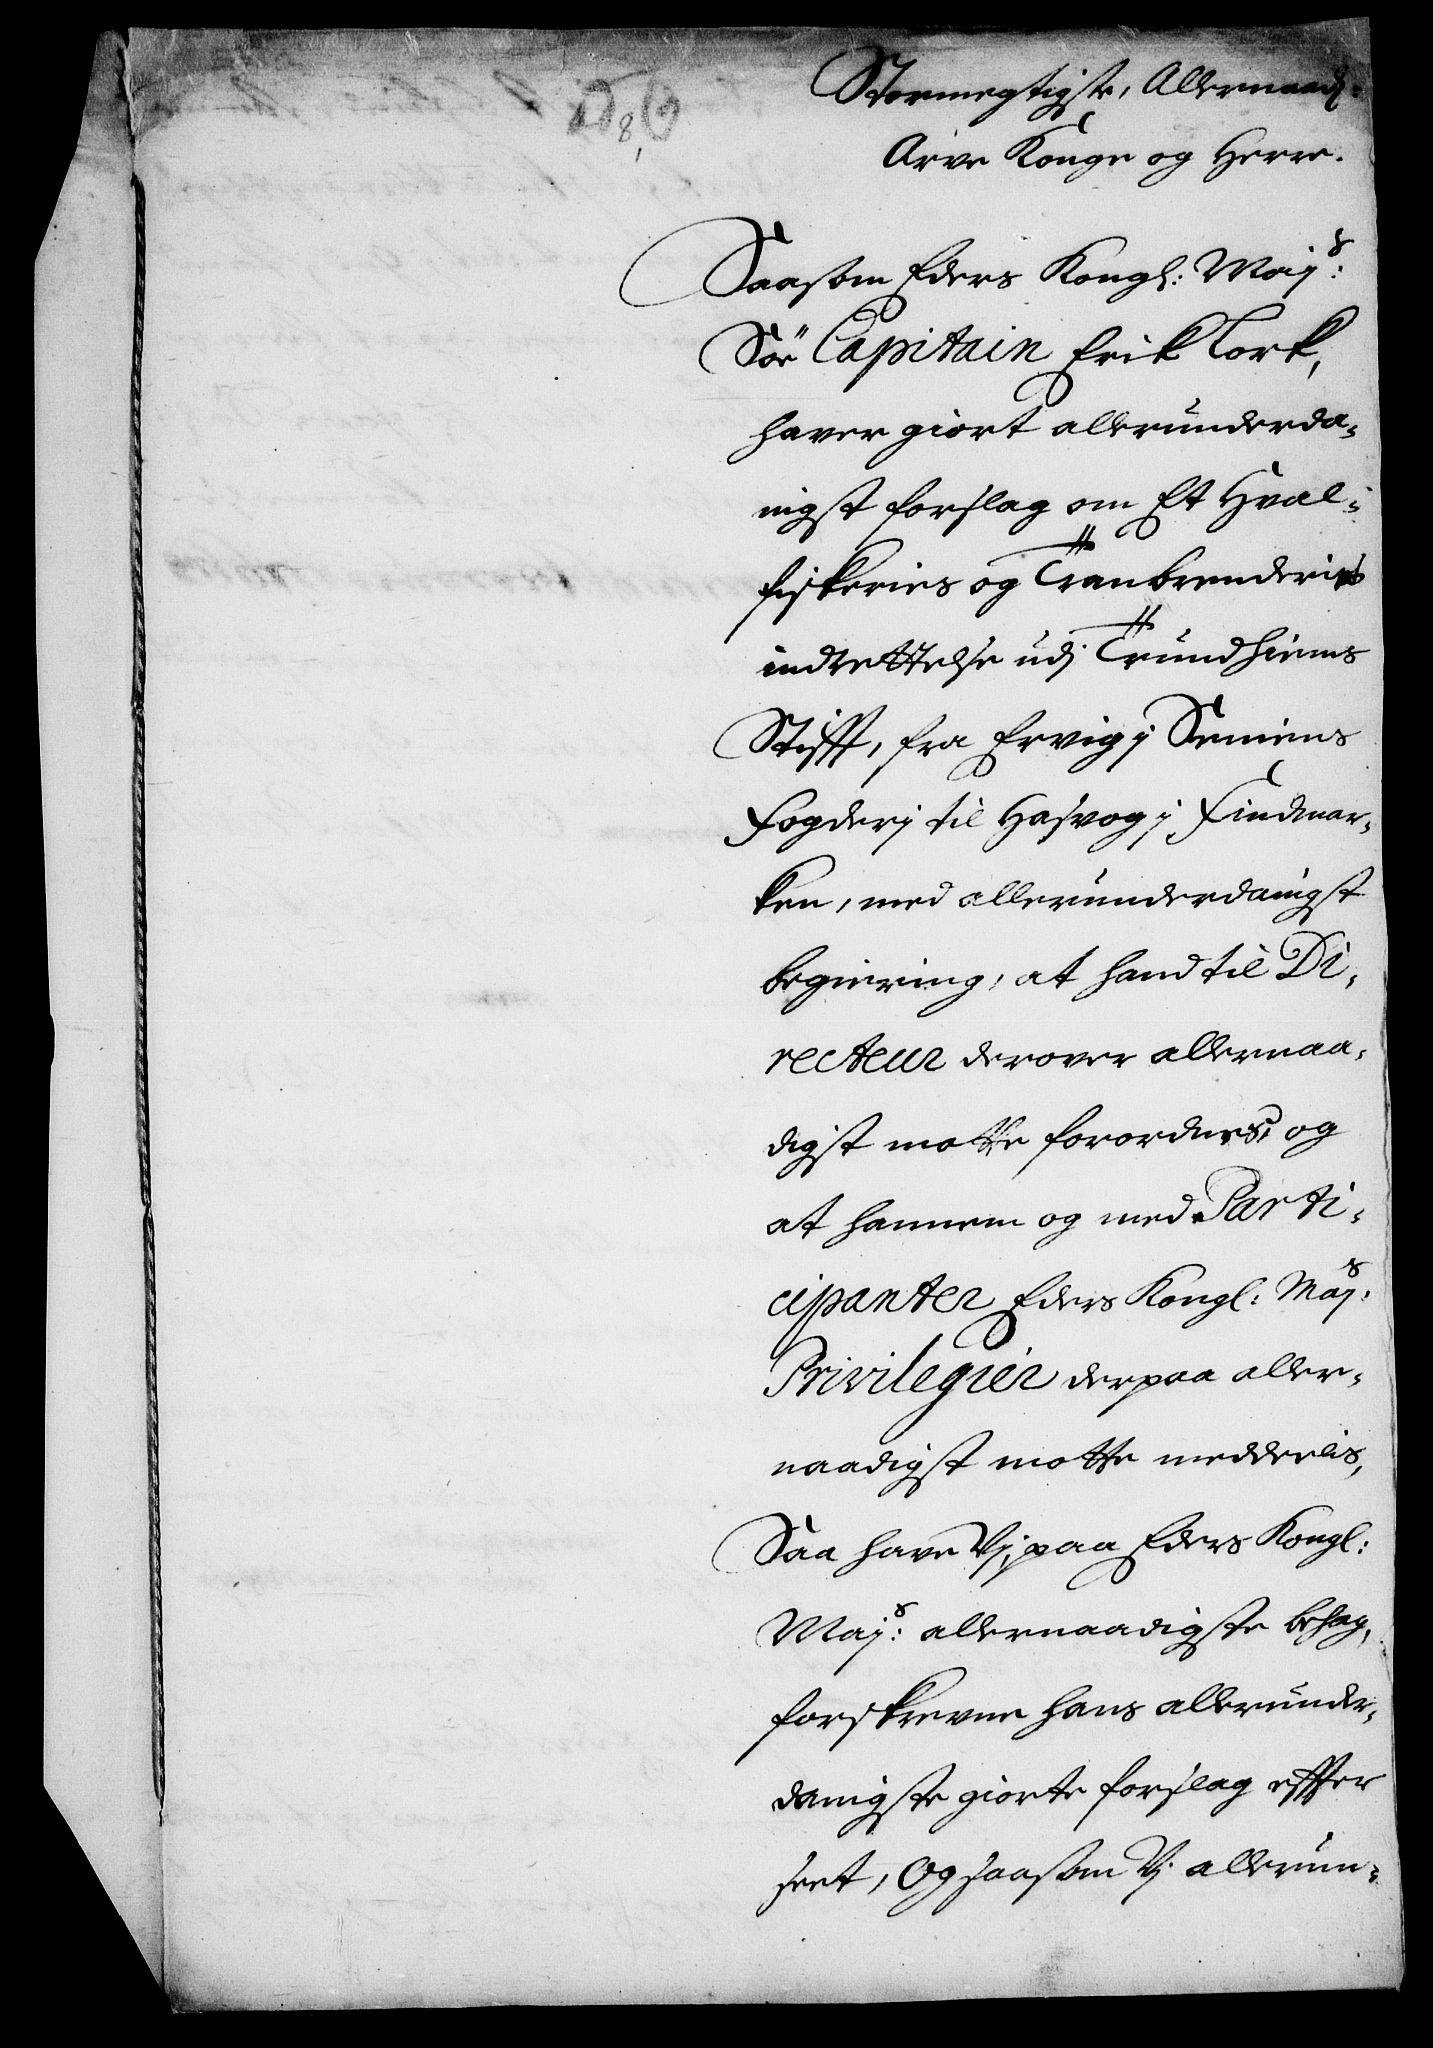 Stormegtigste, Allernaad:
Arve Konge og Herre.
Saasom Eders Kongl: Maj:s
Söe Capitain Erik Lork,
haver giort allerunderda-
nigst forslag om Et Hval-
fiskeries og Tranbrenderies
indrettelse udj Trundhiems
Stifft, fra Ervig j Seniens
Fogderj til Hasvog j Findmar-
ken, med allerunderdanigst
begiering, at hand til Di-
recteur derover allernaa-
digst motte forordnes, og
at hannem og med Parti-
cipanter Eders Kongl: Maj:s
Privilegier derpaa aller-
naadigst motte meddeelis,
Saa have Vj, paa Eders Kongl:
Maj:s allernaadigste behag,
forskrevne hans allerunder-
danigste giorte forslag effter
seet, Og saasom Vj allerun-